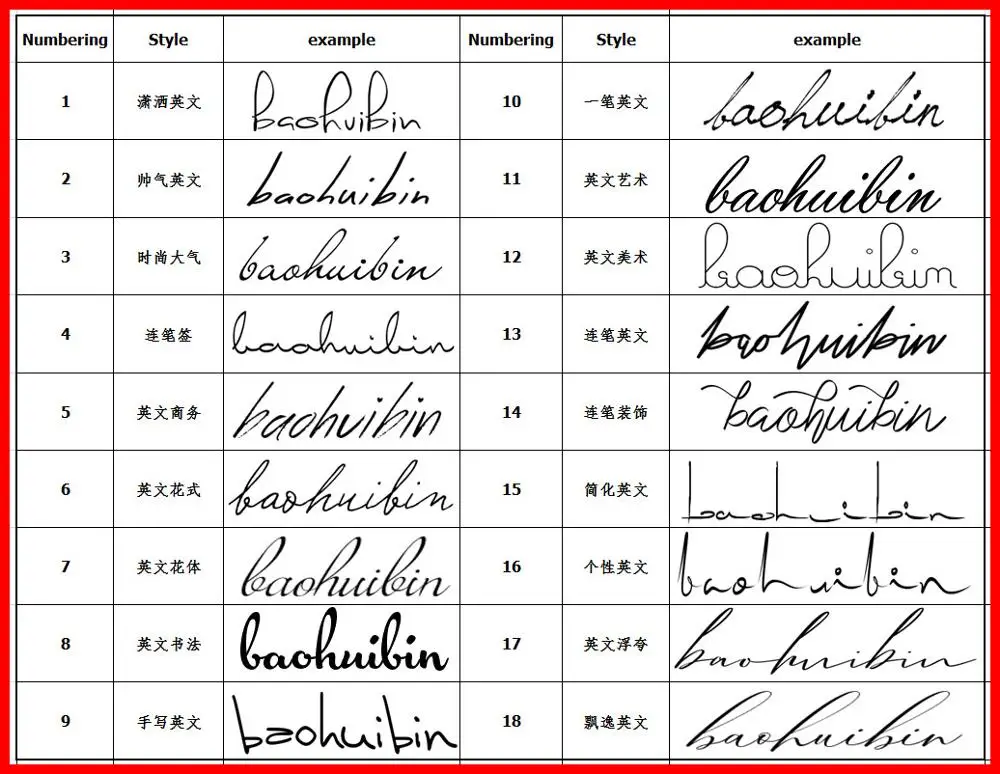 Numbering Style example Numbering Style example
1 潇洒英文 baohuibin 10 一笔英文 baohuibin
2 帅气英文 baohuibin 11 英文艺术 baohuibin
3 时尚大气 baohuibin 12 英文美术 baohuibin
4 连笔签 baohuibin 13 连笔英文 baohuibin
5 英文商务 baohuibin 14 连笔装饰 baohuibin
6 英文花式 baohuibin 15 简化英文 baohuibin
7 英文花体 baohuibin 16 个性英文 baohuibin
8 英文书法 baohuibin 17 英文浮夸 baohuibin
9 手写英文 baohuibin 18 飘逸英文 baohuibin